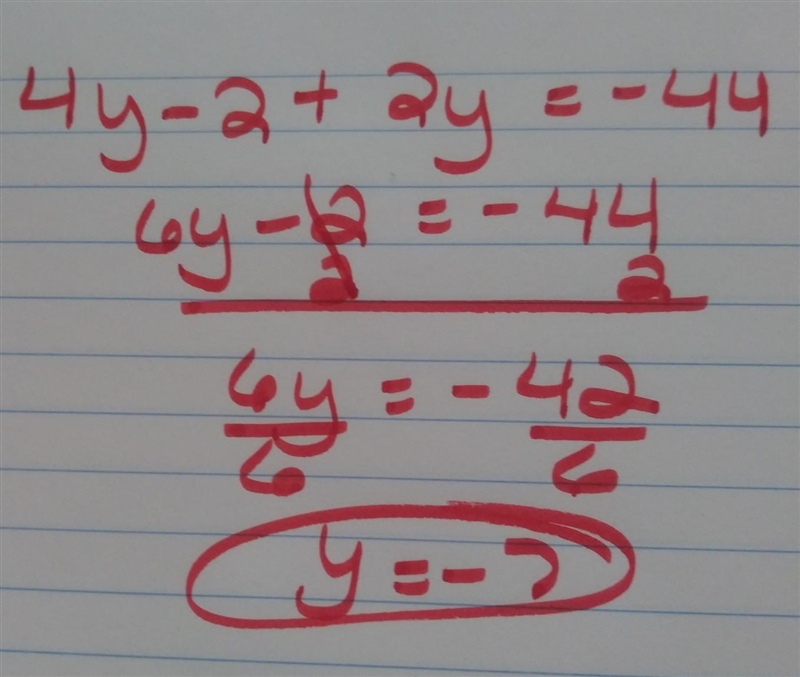 4y - 2 + 2y = -44
6y - 2 = -44
2 2
6y = -42
6 6
y = -7